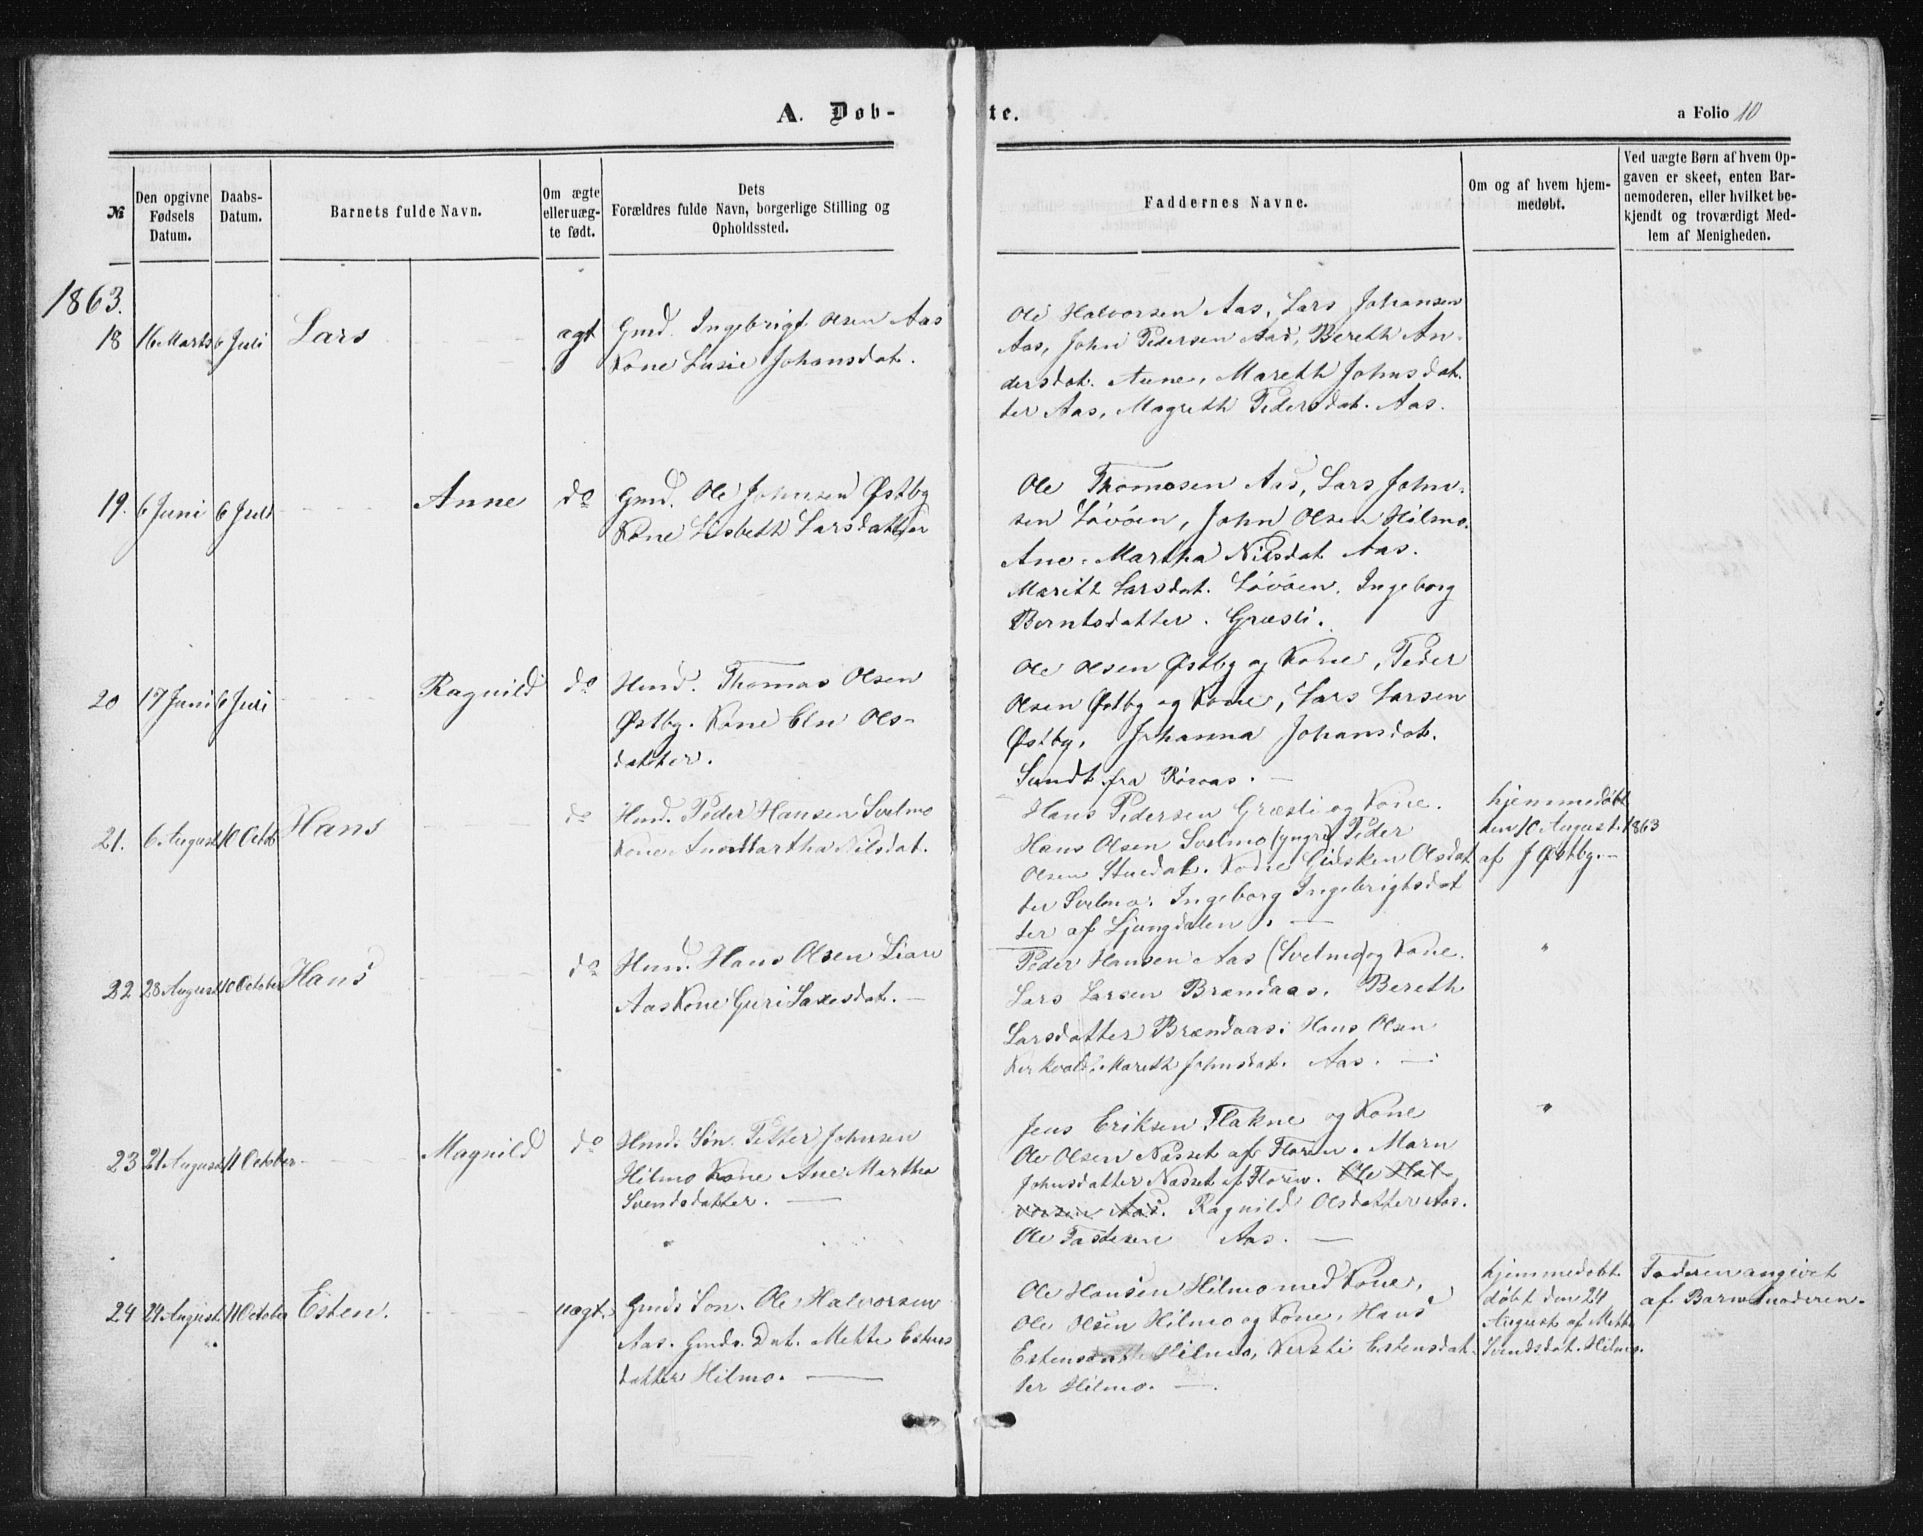 A. Døb-
te.
a Folio 10
№
Den opgivne Fødsels Datum.
Daabs-Datum.
Barnets fulde Navn.
Om ægte eller uæg-te født.
Dets Forældres fulde Navn, borgerlige Stilling og Opholdssted.
Faddernes Navne.
Om og af hvem hjem-medøbt.
Ved uægte Børn af hvem Op-gaven er skeet, enten Bar-nemoderen, eller hvilket be-kjendt og troværdigt Med-lem af Menigheden.
1863.
18 16 Marts 6 Juli Lars ægt
Gmd. Ingebrigt Olsen Aas
Kone Lusie Johansdat.
Ole Halvorsen Aas, Lars Johansen
Aas, John Pedersen Aas, Bereth An-
dersdat. Aune, Mareth Johnsdat-
ter Aas, Magreth Pedersdat. Aas.
19. 6 Juni 6 Juli Anne do
Gmd. Ole Johnsen Østby
Kone Lisbeth Larsdatter
Ole Thomasen Aas, Lars John-
sen Løvøen, John Olsen Hilmo.
Ane Martha Nilsdat Aas.
Marith Larsdat. Løvøen, Ingeborg
Berntsdatter. Græsli.
20 17 Juni 6 Juli Ragnild do
Hmd. Thomas Olsen
Østby. Kone Eln Ols-
datter.
Ole Olsen Østby og Kone, Peder
Olsen Østby og Kone, Lars Larsen
Østby, Johanna Johansdat.
Sundt fra Røraas.
21. 6 August 10 Octob Hans do
Hmd. Peder Hansen Svelmo
Kone Ane Martha Nilsdat.
Hans Pedersen Græsli og Kone.
Hans Olsen Svelmo (yngre) Peder
Olsen Stuedal. Kone Gidsken Olsdat
ter Svelmo. Ingeborg Ingebrigtsdat
ter af Ljungdalen.
hjemmedøbt
den 10 August 1863
af J Østby.
22 28 August 10 October Hans do
Hmd. Hans Olsen Lian
Aas Kone Guri Laxesdat.
Peder Hansen Aas (Svelmo) og Kone.
Lars Larsen Brændaas. Bereth
Larsdatter Brændaas. Hans Olsen
Kirkvold. Mareth Johnsdat. Aas.
"
23 21 August 11 October Magnild do
Hmds Søn. Petter Johnsen
Hilmo Kone Ane Martha
Svendsdatter.
Jens Eriksen Flakne og Kone
Ole Olsen Næsset af Floren. Marn
Johnsdatter Næsset af Floren. Ole Hal
vorsen Aas. Ragnild Olsdatter Aas.
Ole Aas.
"
24 24 August 11 October Esten. uægt.
Gmds Søn. Ole Halvorsen
Aas. Gmds. Dat. Mette Estens
datter Hilmo.
Ole Hansen Hilmo med Kone,
Ole Olsen Hilmo og Kone, Hans
Hilmo, Kersti Estensdat-
ter Hilmo.
hjemmedøbt
døbt den 24
August af Mette
Svendsdat. Hilmo.
Faderen angivet
af Barnemoderen.